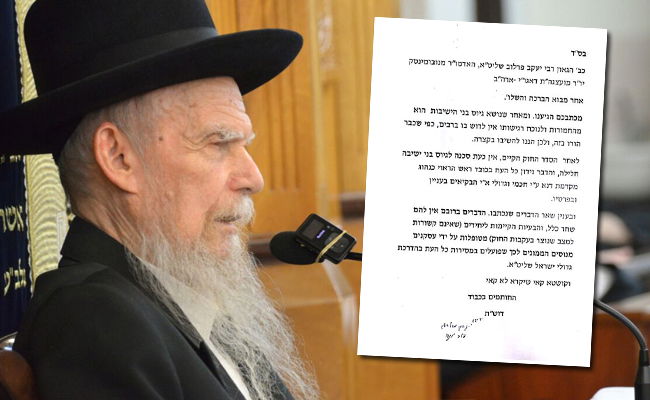 בס"ד
כב' הגאון רבי יעקב פרלוב שליט"א, האדמו"ר מנובומינסק
יו"ר מועצגה"ת דאגו"י -ארה"ב
אחר מבוא הברכה והשלו'.
מכתבכם הגיענו. ומאחר שנושא גיוס בני הישיבות הוא
מהחמורות ולנוכח רגישותו אין לדוש בו ברבים, כפי שכבר
הורו בזה, ולכן הננו להשיבו בקצרה.
לאחר הסדר החוק הקיים, אין כעת סכנה לגיוס בני ישיבה
חלילה, והדבר נידון כל העת בכובד ראש הראוי כנהוג
מקדמת דנא ע"י חכמי וגדולי א"י הבקיאים בעניין
ובפרטיו.
ובענין שאר הדברים שנכתבו. הדברים ברובם אין להם
שחר כלל, והבעיות הקיימות ליחידים (שאינם קשורות
למצב שנוצר בעקבות החוק) מטופלות על ידי עסקנים
מנוסים הממונים לכך שפועלים במסירות כל העת בהדרכת
גדולי ישראל שליט"א.
וקושטא קאי ושיקרא לא קאי
החותמים בכבוד
דוש"ת